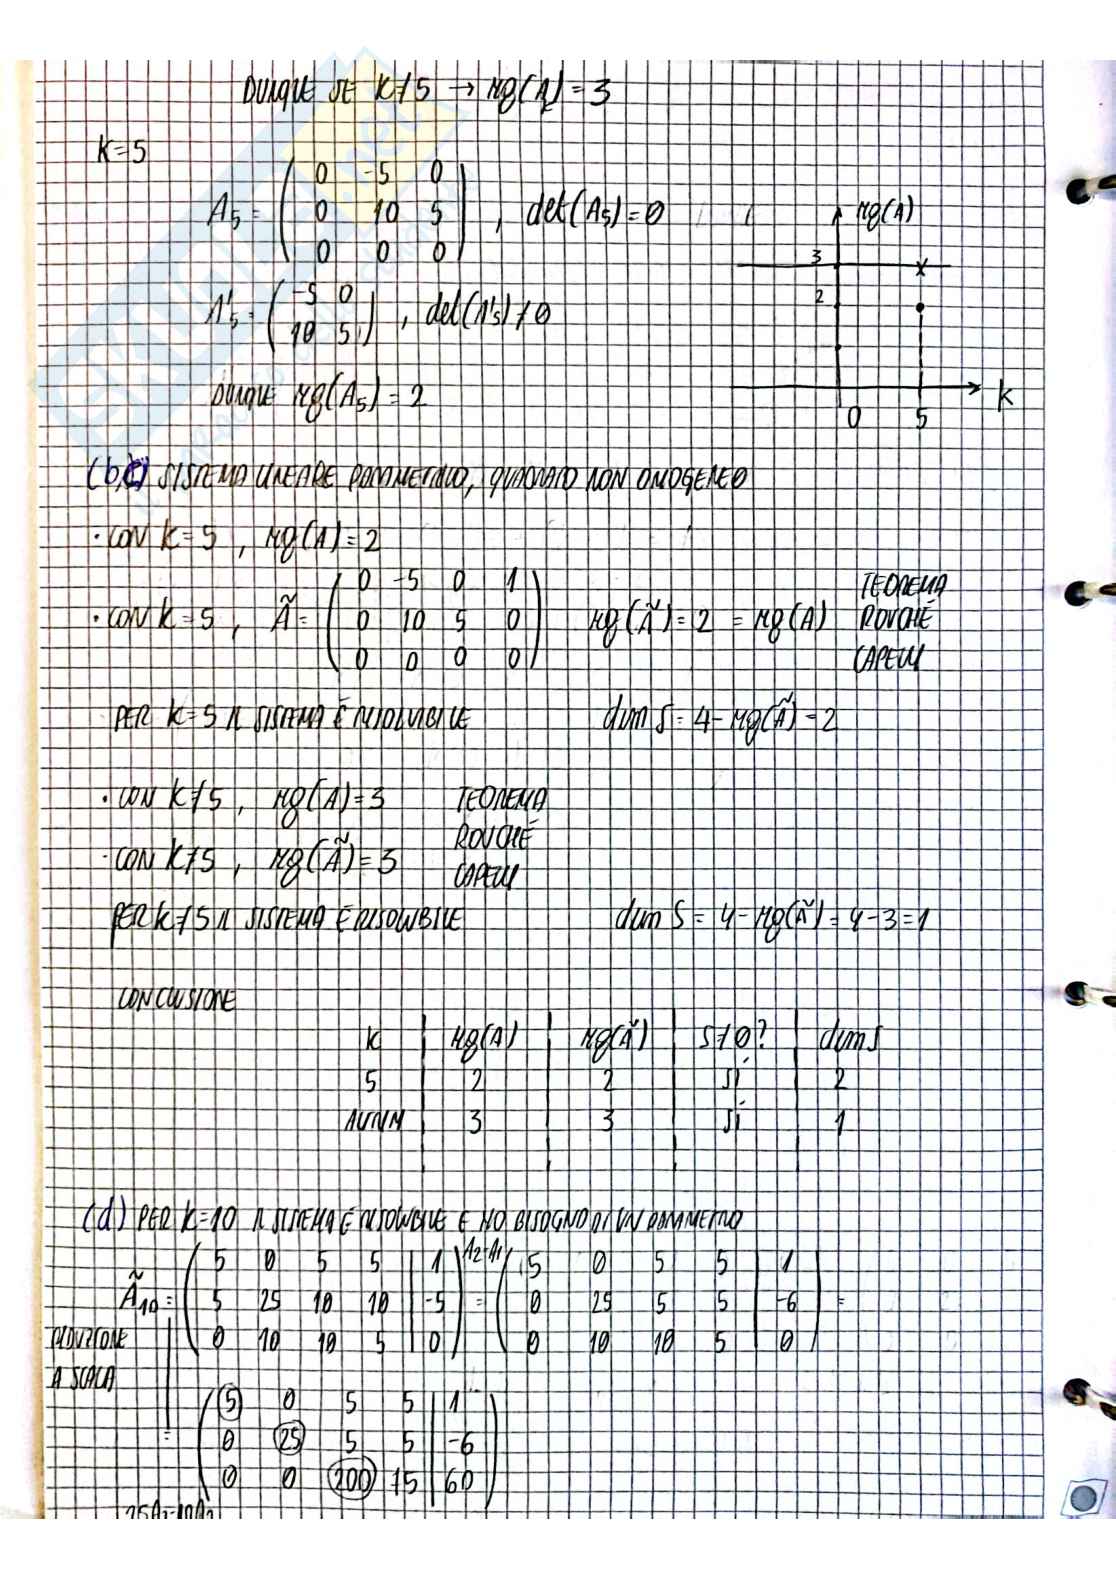 DUNQUE SE K≠5 → rg(A) = 3
K=5
A5 = ( 0 -5 0
0 10 5
0 0 0 ) , det(A5) = 0
A'5 = ( -5 0
10 5 ) , det(A'5) ≠ 0
DUNQUE rg(A5) = 2
rg(A)
3
2
0 5 K
(b,c) SISTEMA LINEARE PARAMETRICO, QUADRATO NON OMOGENEO
· CON K=5 , rg(A)=2
· CON K=5 , Ã = ( 0 -5 0 1
0 10 5 0
0 0 0 0 ) rg(Ã) = 2 = rg(A) TEOREMA
ROUCHÉ
CAPELLI
PER K=5 IL SISTEMA È RISOLVIBILE dim S = 4 - rg(Ã) = 2
· CON K≠5 , rg(A)=3 TEOREMA
ROUCHÉ
· CON K≠5 , rg(Ã)=3 CAPELLI
PER K≠5 IL SISTEMA È RISOLVIBILE dim S = 4 - rg(Ã) = 4-3 = 1
CONCLUSIONE
K rg(A) rg(Ã) S≠0? dim S
5 2 2 SÌ 2
ALTRIM 3 3 SÌ 1
(d) PER K=10 IL SISTEMA È RISOLVIBILE E HO BISOGNO DI UN PARAMETRO
Ã10 = ( 5 0 5 5 | 1
5 25 10 10 | -5
0 10 10 5 | 0 ) A2-A1 = ( 5 0 5 5 | 1
0 25 5 5 | -6
0 10 10 5 | 0 ) =
RIDUZIONE
A SCALA
= ( 5 0 5 5 | 1
0 25 5 5 | -6
0 0 200 75 | 60 )
SKUOLA.net